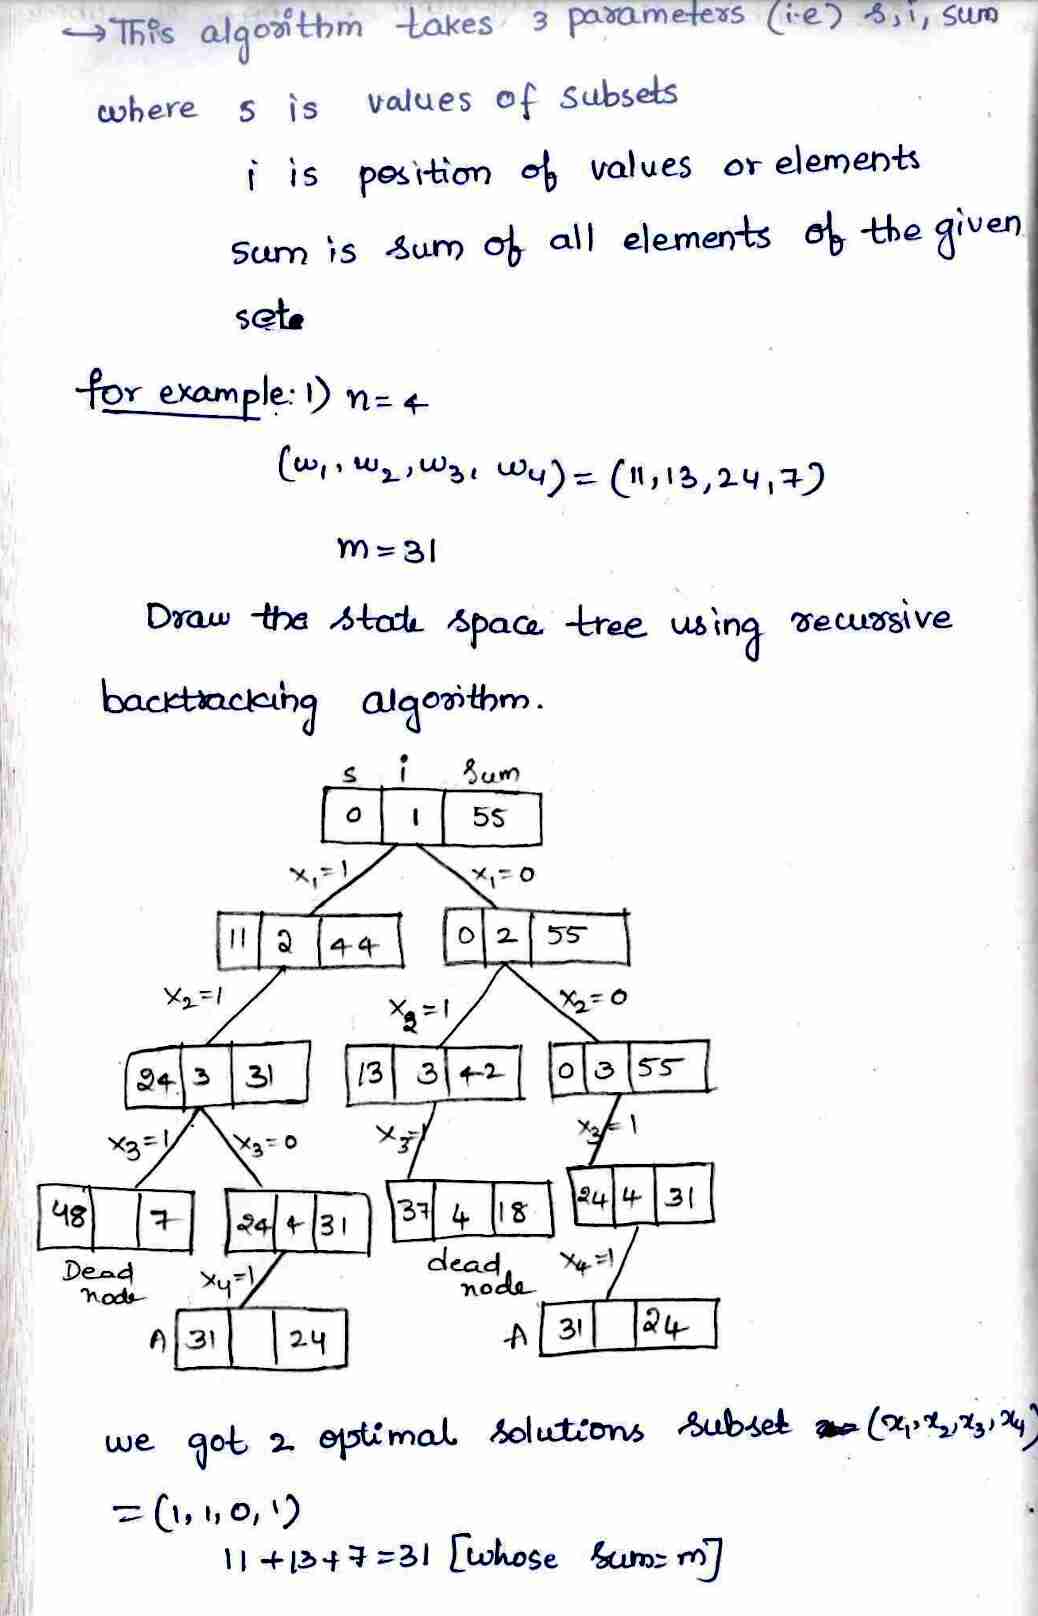 → This algorithm takes 3 parameters (i.e) s, i, sum
where s is values of subsets
i is position of values or elements
sum is sum of all elements of the given
set.
for example: 1) n = 4
(w1, w2, w3, w4) = (11, 13, 24, 7)
m = 31
Draw the state space tree using recursive
backtracking algorithm.
s i Sum
0 1 55
x1=1 x1=0
11 2 44 0 2 55
x2=1 x2=1 x2=0
24 3 31 13 3 42 0 3 55
x3=1 x3=0 x3=1 x3=1
48 7 24 4 31 37 4 18 24 4 31
Dead node x4=1 dead node x4=1
A 31 24 A 31 24
we got 2 optimal solutions subset (x1, x2, x3, x4)
= (1, 1, 0, 1)
11 + 13 + 7 = 31 [whose sum = m]